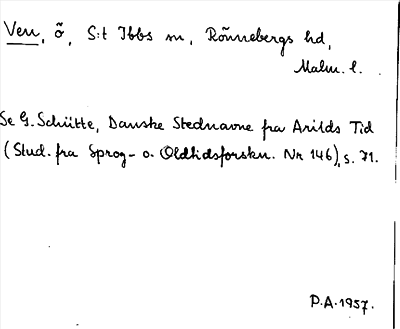 Ven, ö, S:t Ibbs sn, Rönnebergs hd,
Malm. l.
Se G. Schütte, Danske Stednavne fra Arilds Tid
(Stud. fra Sprog- o. Oldtidsforskn. Nr 146), s. 71.
P.A. 1957.